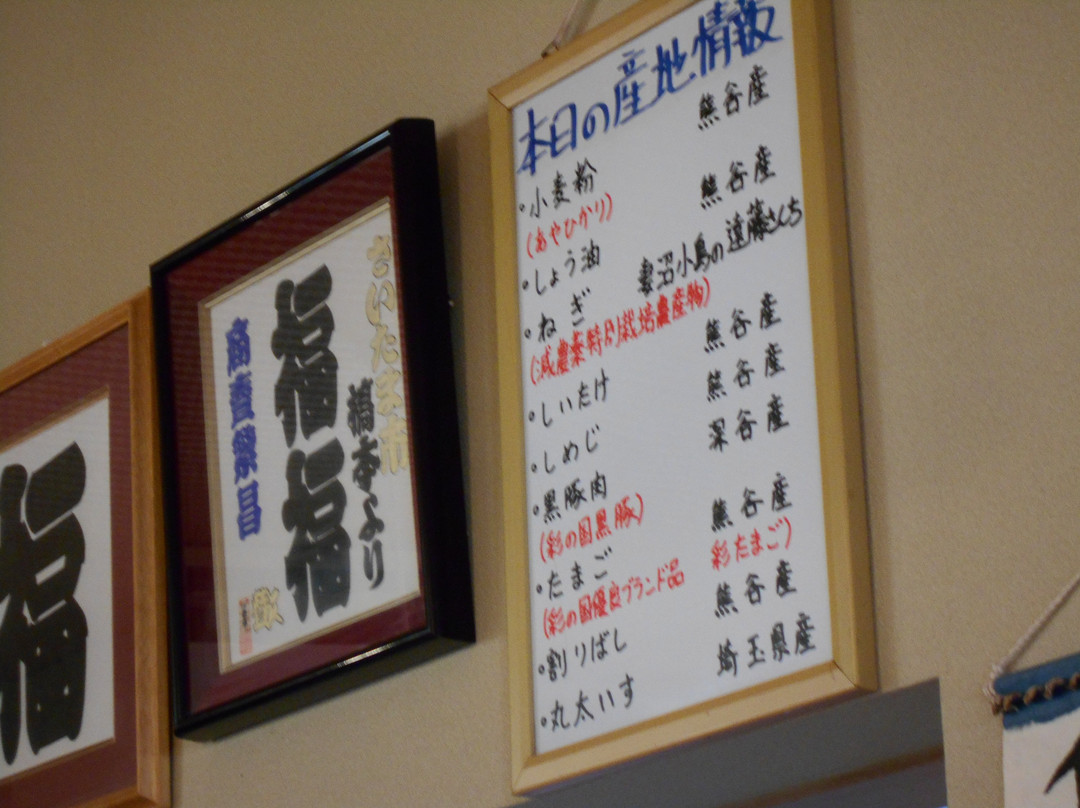 福
さいたま市
橋本より
福福
商売繁昌
本日の産地情報
・小麦粉 熊谷産
(あやひかり)
・しょう油 熊谷産
・ねぎ 妻沼小島の遠藤さんち
(減農薬特別栽培農産物)
・しいたけ 熊谷産
・しめじ 熊谷産
・黒豚肉 深谷産
(彩の国黒豚)
・たまご 熊谷産
(彩の国優良ブランド品 彩たまご)
・割りばし 熊谷産
・丸太いす 埼玉県産